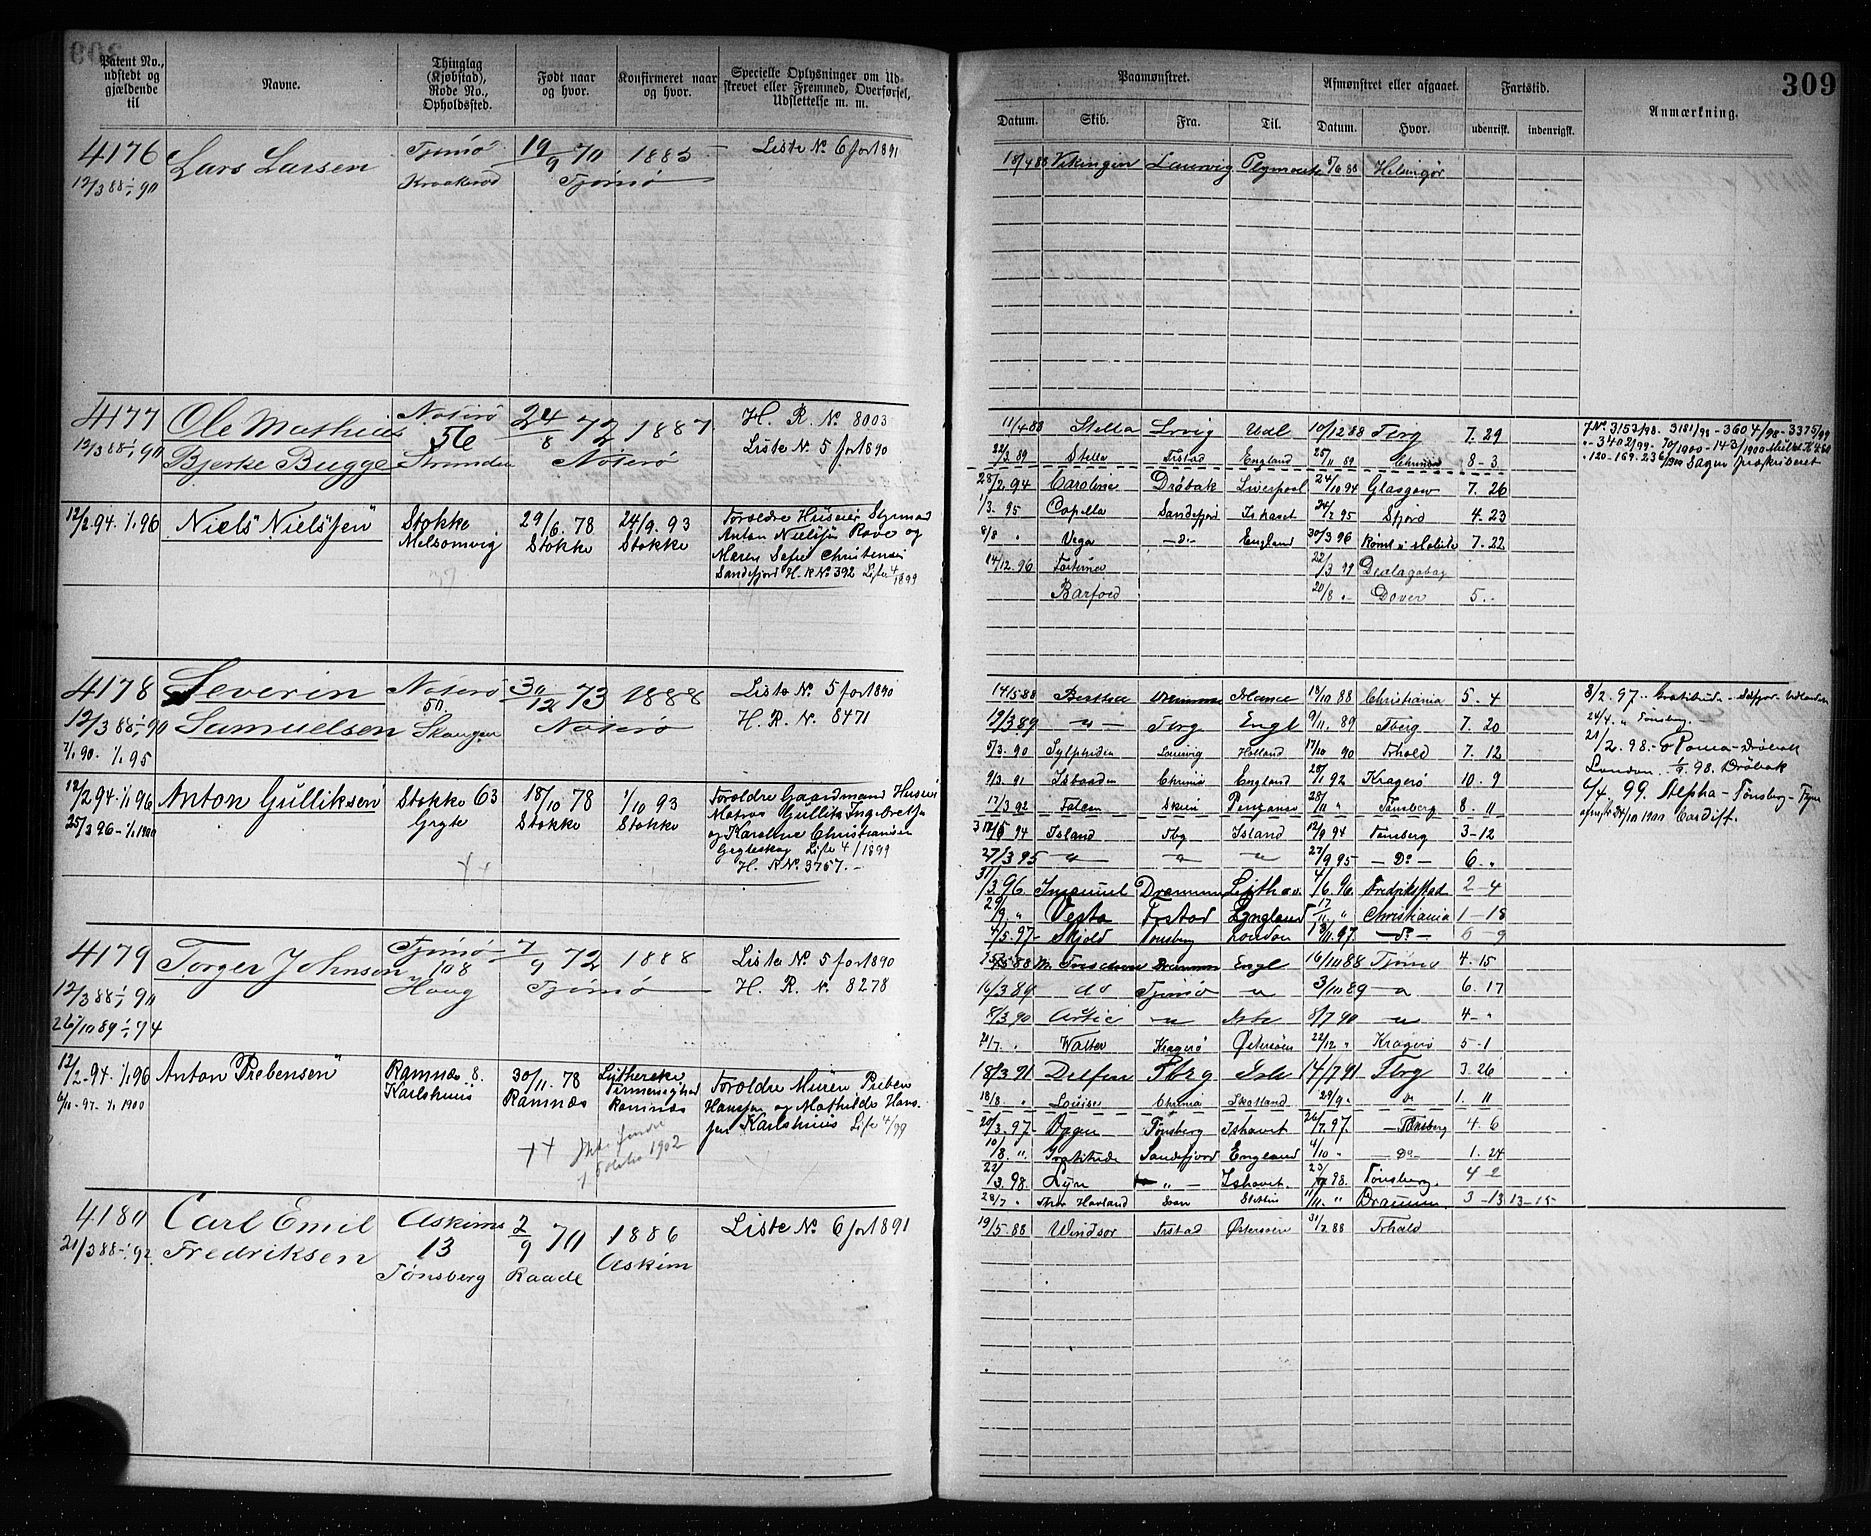 309
Patent No., udstedt og gjældende til
Navne.
Thinglag (Kjøbstad), Rode No., Opholdssted.
Født naar og hvor.
Konfirmeret naar og hvor.
Specielle Oplysninger om Udskrevet eller Fremmed, Overførsel, Udslettelse m. m.
Paamønstret.
Afmønstret eller afgaaet.
Fartstid.
Anmærkning.
Datum. Skib. Fra. Til. Datum. Hvor. udenrigsk. indenrigsk.
4176 Lars Larsen Tjømø 19/9 70 1885 Liste No. 6 for 1891
12/3 88 1/1 90 Tjømø
18/4 88 Vikingen Laurvig Plymouth 5/6 88 Helsingør
4177 Ole Mathias Nøterø 24/8 72 1887 H. R. No. 8003
12/3 88 1/1 90 Bjerke Bugge 56 Nøterø Liste No. 5 for 1890
11/4 88 Stella Lrvig Udl 10/12 88 Tbrg 7. 29
22/2 89 Stella Frstad England 25/11 89 8 - 3
12/2 94. 1/1 96 Niels Nielssen Stokke Melsomvig 29/6. 78 Stokke 24/9. 93 Stokke
Anton Nielssen Rove og
Sandefjord H. R No 392 Liste 4/1899
28/2. 94 Caroline Drøbak Liverpool 24/10 94 Glasgow 7. 26
1/3. 95 Capella Sandefjord Ishavet 24/2 95 4. 23
8/8 " Vega - D - England 30/3 96 7. 22
14/12. 96 22/3 99 Delagobay
Barford 20/8 " Dover 5. -
4178 Severin Nøterø 30/12 73 1888 Liste No. 5 for 1890
12/3 88 1/1 90 Samuelsen 50. Skaugen Nøterø H. R. No. 8471
7/1 90. 1/1 95
14/5 88 Berthea 13/10 88 Christiania 5. 4
19/3 89 - " - Tbrg Engl 9/11. 89 7. 20
5/3. 90 Sylphiden Laurvig Holland 17/10 90 Frhald 7. 12
9/3. 91 Chrnia England 28/1 92 Kragerø 10. 9
17/3 92 Falcon Skien Penzance 28/11 " Tønsberg 8. 11
8/2. 97. Gratitude
24/4. " Tønsberg.
21/2. 98. - Roma - Drøbak
London. 1/9. 98. Drøbak
6/4. 99. Alpha - Tønsberg - Tyne
1900 Cardiff.
12/2 94. 1/1 96 Anton Gulliksen Stokke 63 18/10 78 Stokke 1/10 93 Stokke
25/3 96 - 1/1 1900
Forældre Gaardmand Huseier
og Karoline Christiansen
Liste 4/1899
H. R No 3767. -
94 Island Tbg Island 12/9 94 Tønsberg 3 - 12
27/3 95 " " " 27/9 95 - Do - 6. "
31/3 96 Imanuel Drammen 4/6. 96. Fredrikstad 2 - 4
29/9. " Vesta Frstad England 17/11 " Christiania 1 - 18
4/5. 97. Skjold Tønsberg London 97. - Do - 6 - 9
4179 Torger Johnsen Tjømø 7/9 72 1888 Liste No. 5 for 1890
12/3 88 1/1 90 108 Haug Tjømø H. R. No. 8278
26/10 89 1/1 94
Drammen Engl 16/10 88 Tjømø 4. 15
16/3 89 do Tjømø " 3/10 89 " 6. 17
8/3 90 Arctic " 8/7 90 " 4 - "
21/7. " Walter Kragerø Østersøen 22/12 " Kragerø 5 - 1
18/3 91 Delfin Tbrg 14/7 91 Tbrg 3. 26
18/8 " Louise Chrnia Skotland 29/9 " Do 1. 11
12/2. 94. 1/1 96 Anton Prebensen Ramnæs 8. Karlshuus 30/11. 78 Ramnæs Ramnæs
6/11 - 97. 1/1 1900
Forældre Murer Preben
Hanssen og Mathilde Hanssen Karlshuus Liste 4/99
1902
20/3. 97 Tønsberg Ishavet 26/7. 97. - Tønsberg 4. 6
10/8. " Gratitude Sandefjord England 4/10 " - Do - 1. 24
22/3. 98. Lyn - " - Ishavet. 98. Tønsberg. 4 2
28/7 " Svan Stettin 11/11. " Drammen. 3 - 13 13 - 15
4180 Carl Emil Askims 2/9 70 1886 Liste No. 6 for 1891
21/3 88 - 1/1 92. Fredriksen 13 Tønsberg Raade Askim
19/5. 88 Windsor Frstad Østersøen 31/7 88 Frhald